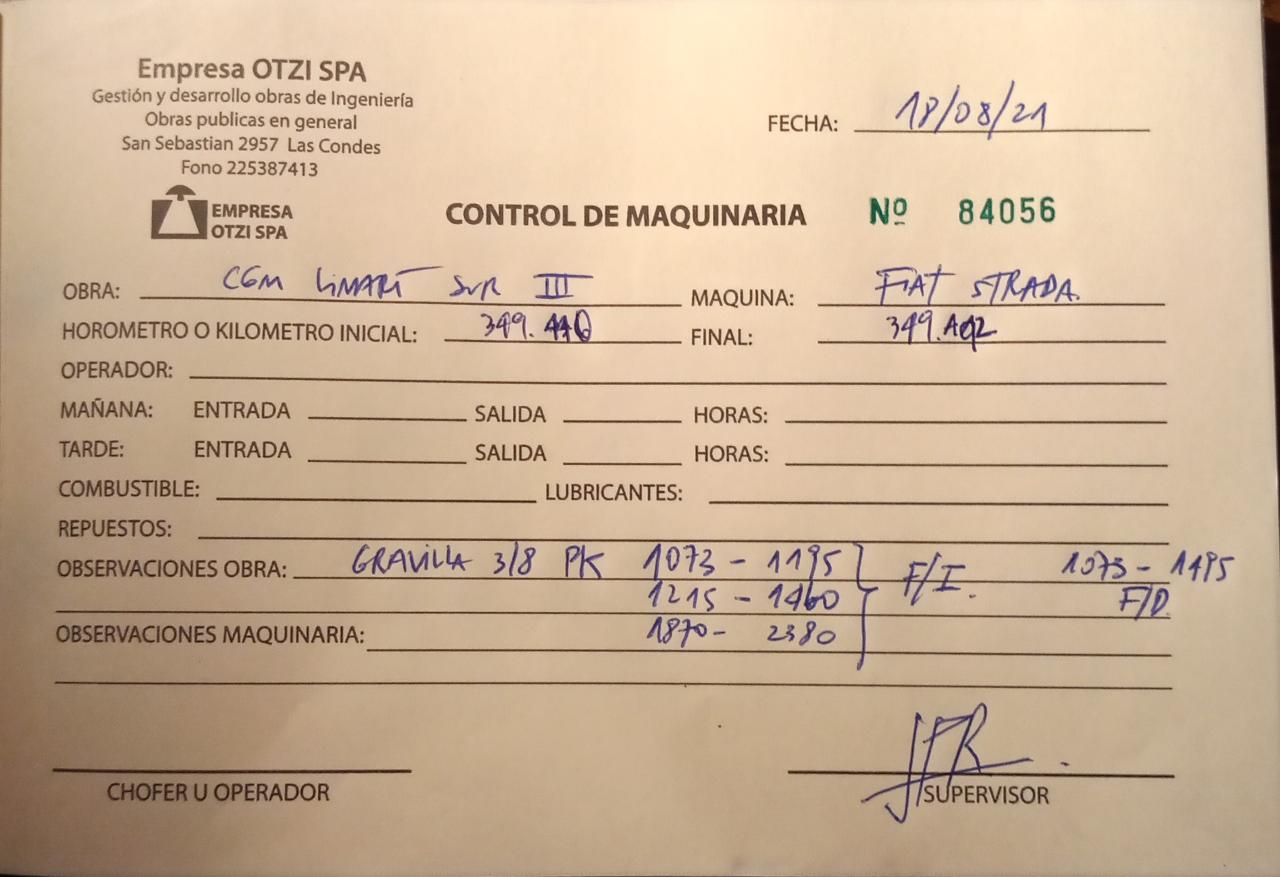 Empresa OTZI SPA
Gestión y desarrollo obras de Ingeniería
Obras publicas en general
San Sebastian 2957 Las Condes
Fono 225387413
FECHA: 18/08/21
EMPRESA
OTZI SPA
CONTROL DE MAQUINARIA Nº 84056
OBRA: CGM LIMARÍ SUR III MAQUINA: FIAT STRADA
HOROMETRO O KILOMETRO INICIAL: FINAL:
OPERADOR:
MAÑANA: ENTRADA SALIDA HORAS:
TARDE: ENTRADA SALIDA HORAS:
COMBUSTIBLE: LUBRICANTES:
REPUESTOS:
OBSERVACIONES OBRA: GRAVILLA 3/8 PK 1073 - 1195 F/I. 1073 - 1195
1215 - 1460 F/D
OBSERVACIONES MAQUINARIA: 1870 - 2380
CHOFER U OPERADOR
SUPERVISOR